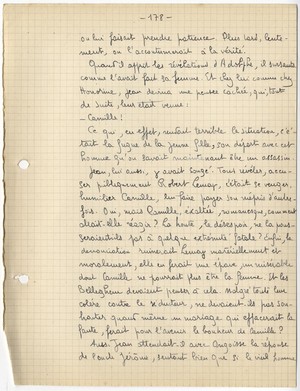 - 178 -
ou lui faisait prendre patience. Plus tard, lente-
ment, on l'accoutumerait à la vérité.
Quand il apprit les révélations d'Adolphe, il sursauta
comme l'avait fait sa femme. Et chez lui comme chez
Honorine, Jean devina une pensée cachée, qui, tout
de suite, leur était venue :
- Camille !
Ce qui, en effet, rendait terrible la situation, c'é-
tait la fugue de la jeune fille, son départ avec cet
homme qu'on savait maintenant être un assassin.
Jean, lui aussi, y avait songé. Tout révéler, accu-
ser publiquement Robert c'était se venger,
humilier Camille, lui faire payer son mépris d'autre-
fois. Oui, mais Camille, exaltée, romanesque, comment
allait-elle réagir ? La honte, le désespoir, ne la pous-
seraient-ils pas à quelque extrémité fatale ? Enfin, la
dénonciation ruinerait matériellement et
moralement, elle en ferait une épave, un misérable
dont Camille ne pourrait plus être la femme. Et les
devaient penser à cela. Malgré toute leur
colère contre le séducteur, ne devaient-ils pas sou-
haiter quand même un mariage qui effacerait la
faute, ferait pour l'avenir le bonheur de Camille ?
Aussi Jean attendait-il avec angoisse la réponse
de l'oncle Jérôme, sentant bien que si le vieil homme